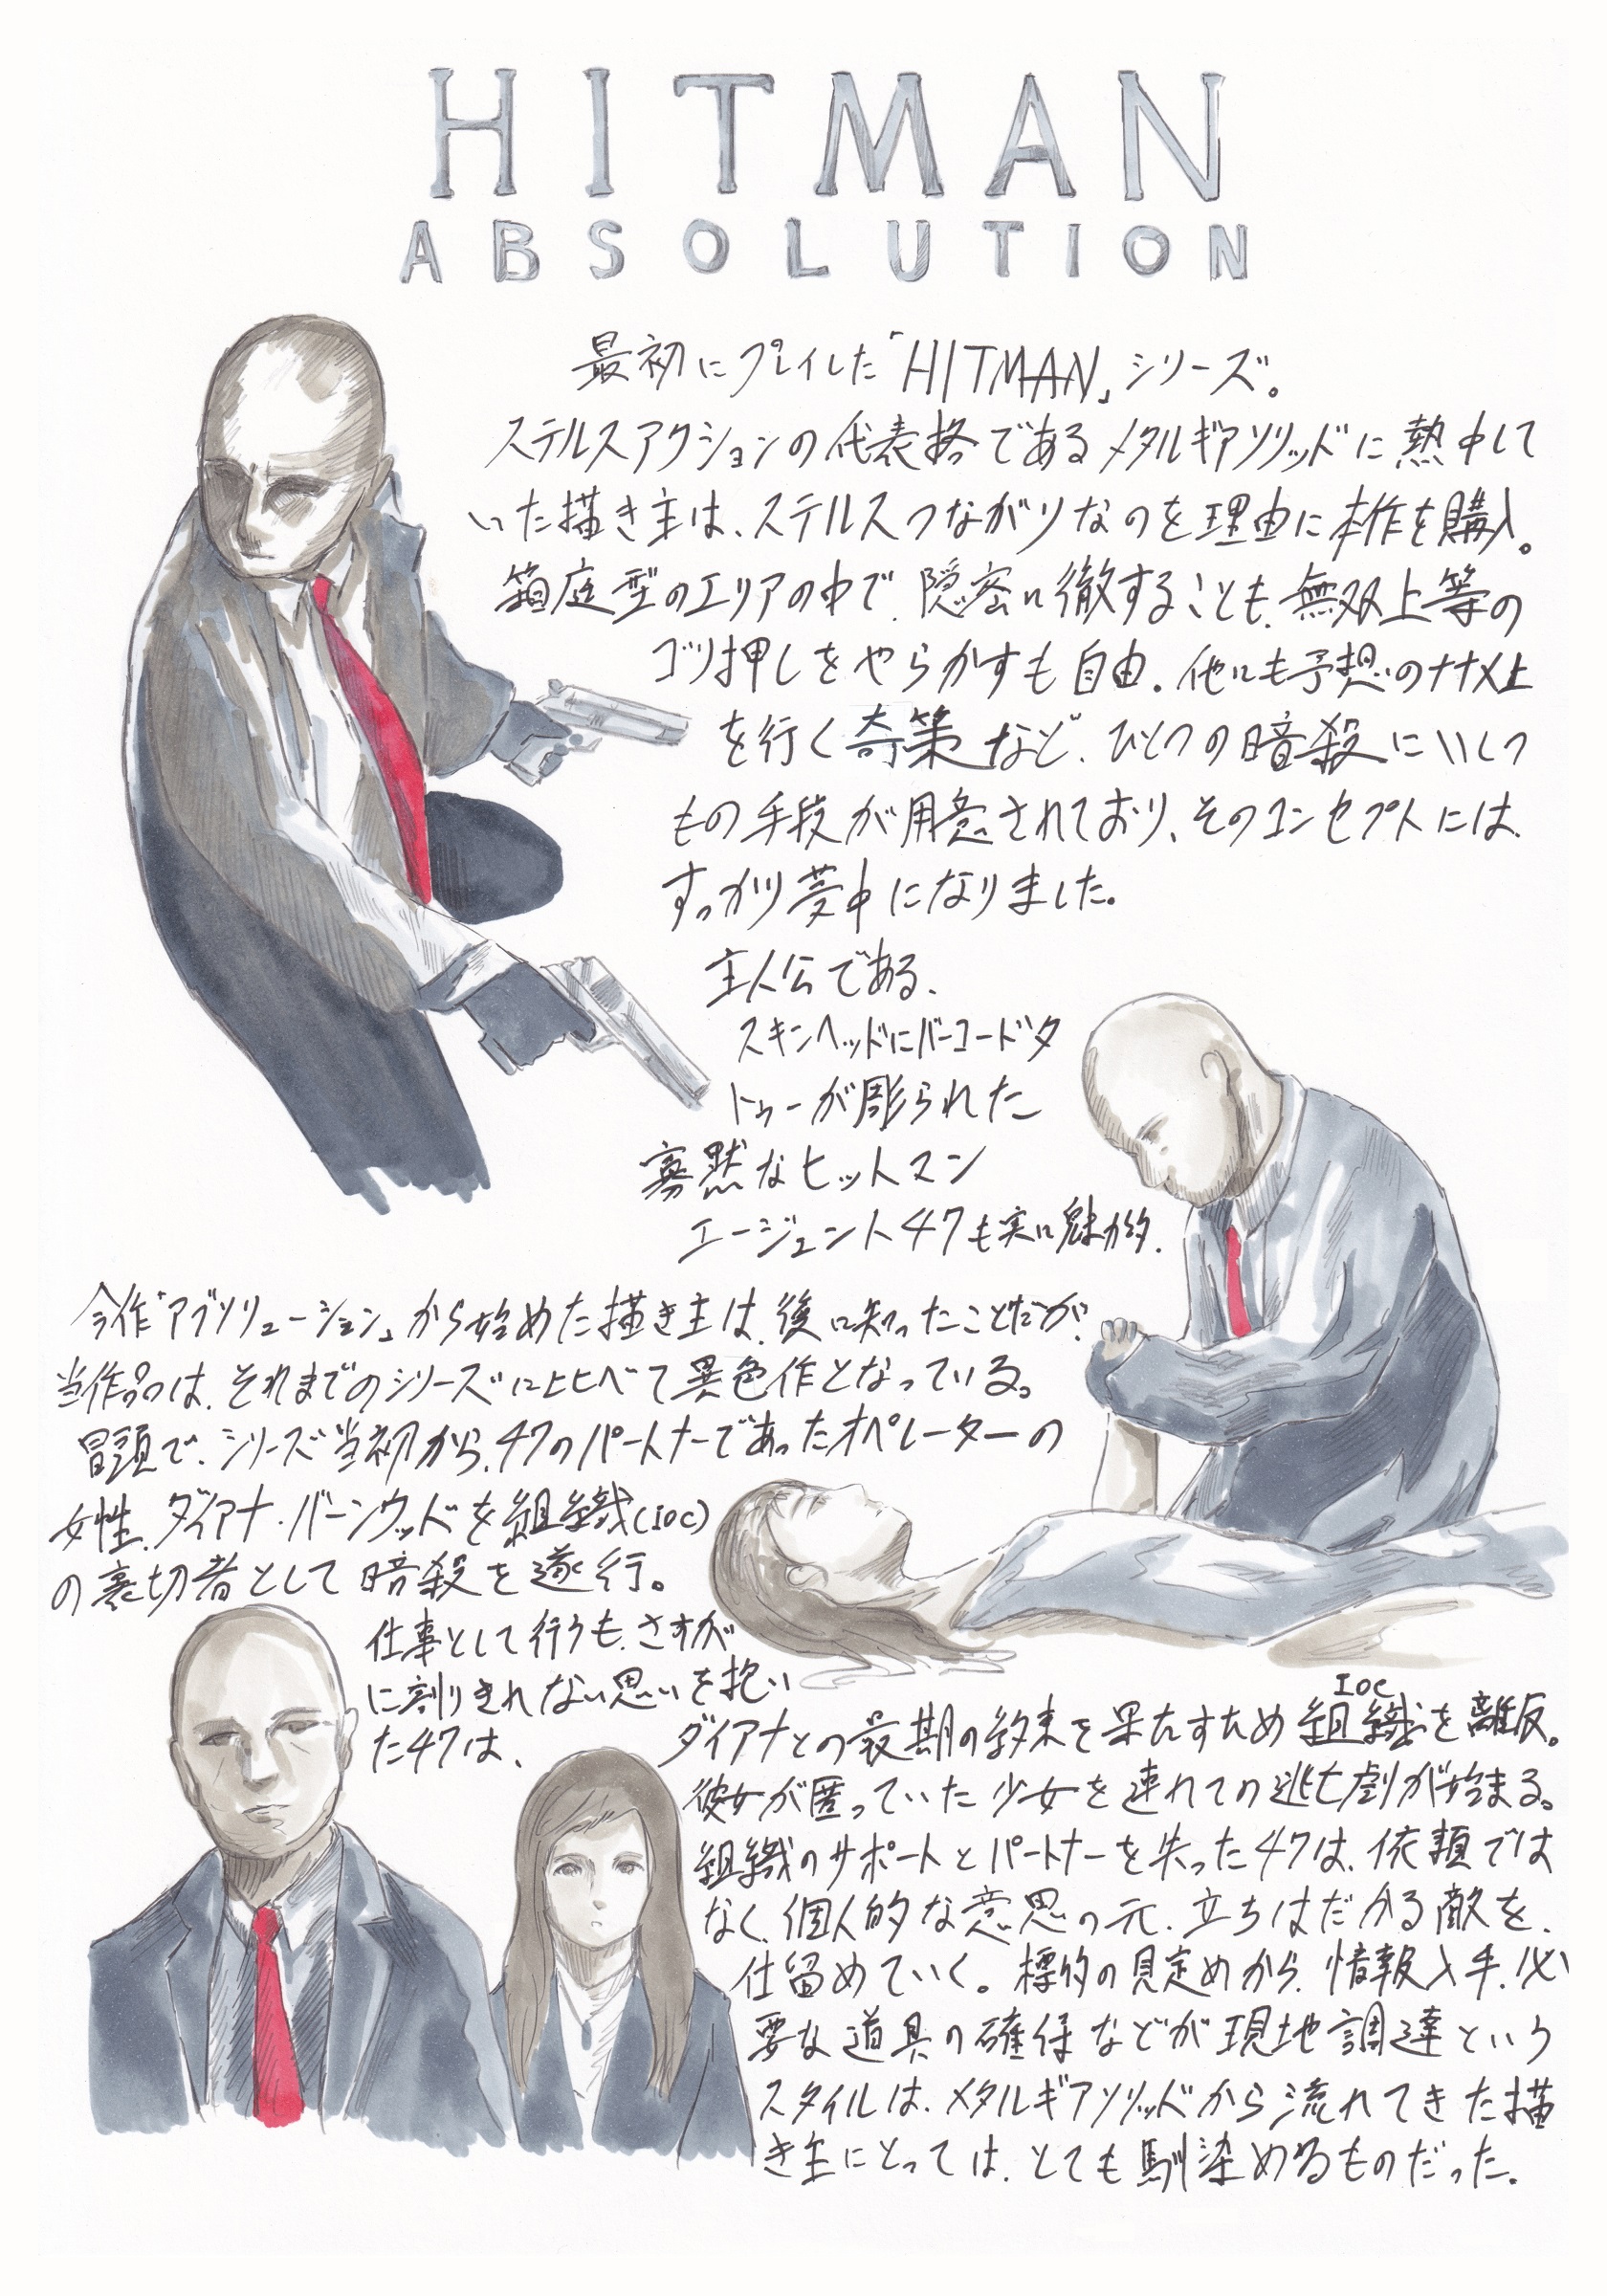 HITMAN
ABSOLUTION
最初にプレイした「HITMAN」シリーズ。
ステルスアクションの代表格であるメタルギアソリッドに熱中して
いた描き主は、ステルスつながりなのを理由に本作を購入。
箱庭型のエリアの中で、隠密に徹することも、無双上等の
ゴリ押しをやらかすも自由。他にも予想のナナメ上
を行く奇策など、ひとつの暗殺にいくつ
もの手段が用意されており、そのコンセプトには、
すっかり夢中になりました。
主人公である、
スキンヘッドにバーコードタ
トゥーが彫られた
寡黙なヒットマン
エージェント47も実に魅力的。
今作「アブソリューション」から始めた描き主は、後に知ったことだが、
当作品は、それまでのシリーズに比べて異色作となっている。
冒頭で、シリーズ当初から、47のパートナーであったオペレーターの
女性、ダイアナ・バーンウッドを組織(IOC)
の裏切者として暗殺を遂行。
仕事として行うも、さすが
に割りきれない思いを抱い
た47は、
ダイアナとの最期の約束を果たすため組織を離反。
IOC
彼女が匿っていた少女を連れての逃亡劇が始まる。
組織のサポートとパートナーを失った47は、依頼では
なく、個人的な意思の元、立ちはだかる敵を、
仕留めていく。標的の見定めから、情報入手、必
要な道具の確保などが現地調達という
スタイルは、メタルギアソリッドから流れてきた描
き主にとっては、とても馴染めるものだった。